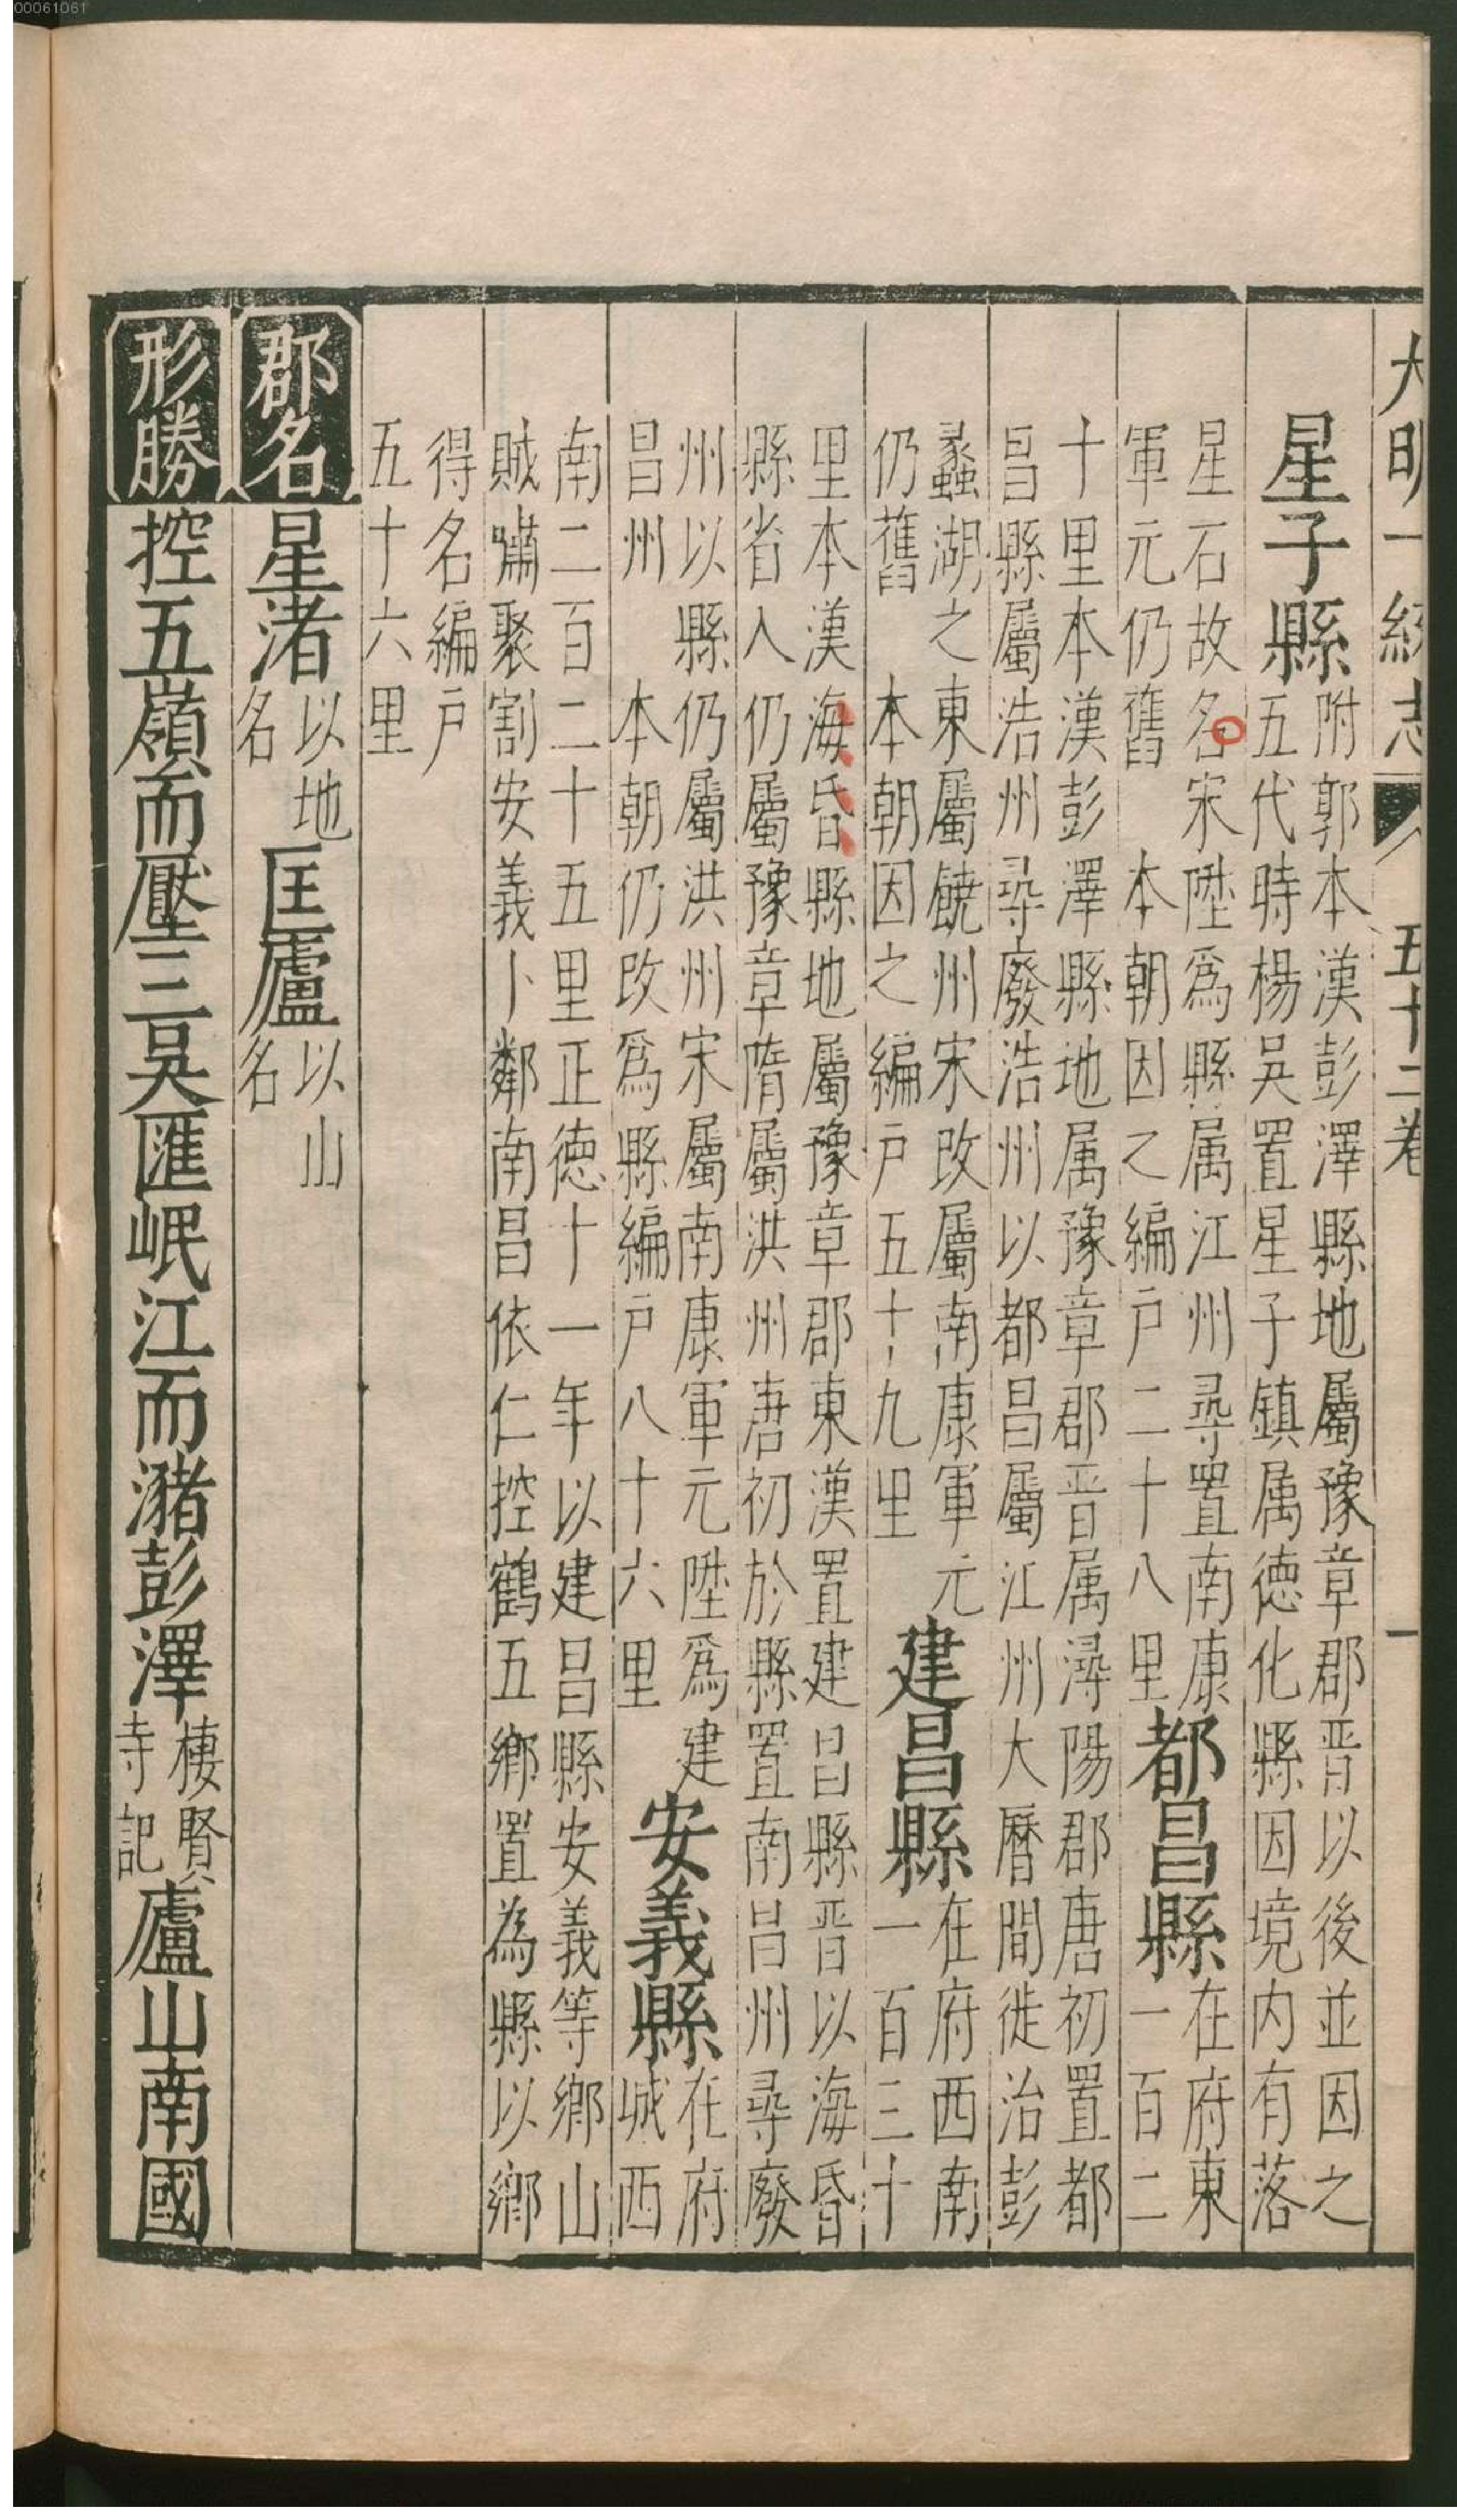 00061061
大明一統志 五十二卷 一
星子縣
附郭本漢彭澤縣地屬豫章郡晉以後並因之
五代時楊吳置星子鎮属德化縣因境内有落
星石故名宋陞爲縣属江州尋置南康
軍元仍舊 本朝因之編户二十八里
都昌縣
在府東
一百二
十里本漢彭澤縣地属豫章郡晉属潯陽郡唐初置都
昌縣屬浩州尋廢浩州以都昌屬江州大曆間徙治彭
蠡湖之東屬饒州宋改屬南康軍元
仍舊 本朝因之編户五十九里
建昌縣
在府西南
一百三十
里本漢海昏縣地屬豫章郡東漢置建昌縣晉以海昏
縣省入仍屬豫章隋屬洪州唐初於縣置南昌州尋廢
州以縣仍屬洪州宋屬南康軍元陞爲建
昌州 本朝仍改爲縣編户八十六里
安義縣
在府
城西
南二百二十五里正德十一年以建昌縣安義等鄉山
賊嘯聚割安義卜鄰南昌依仁控鶴五鄉置為縣以鄉
得名編户
五十六里
郡名
星渚
以地
名
匡廬
以山
名
形勝
控五嶺而壓三吳匯岷江而瀦彭澤
棲賢
寺記
廬山南國